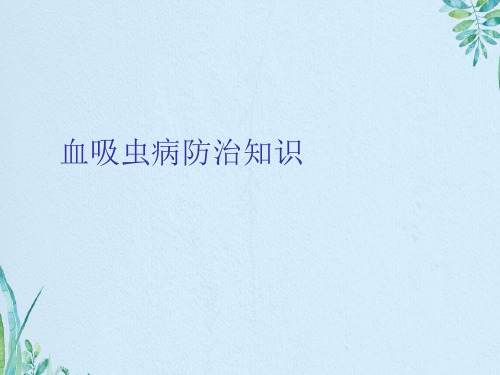 血吸虫病防治知识